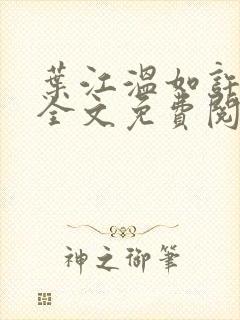 葉江溫如許
全文免費閱
神之御筆